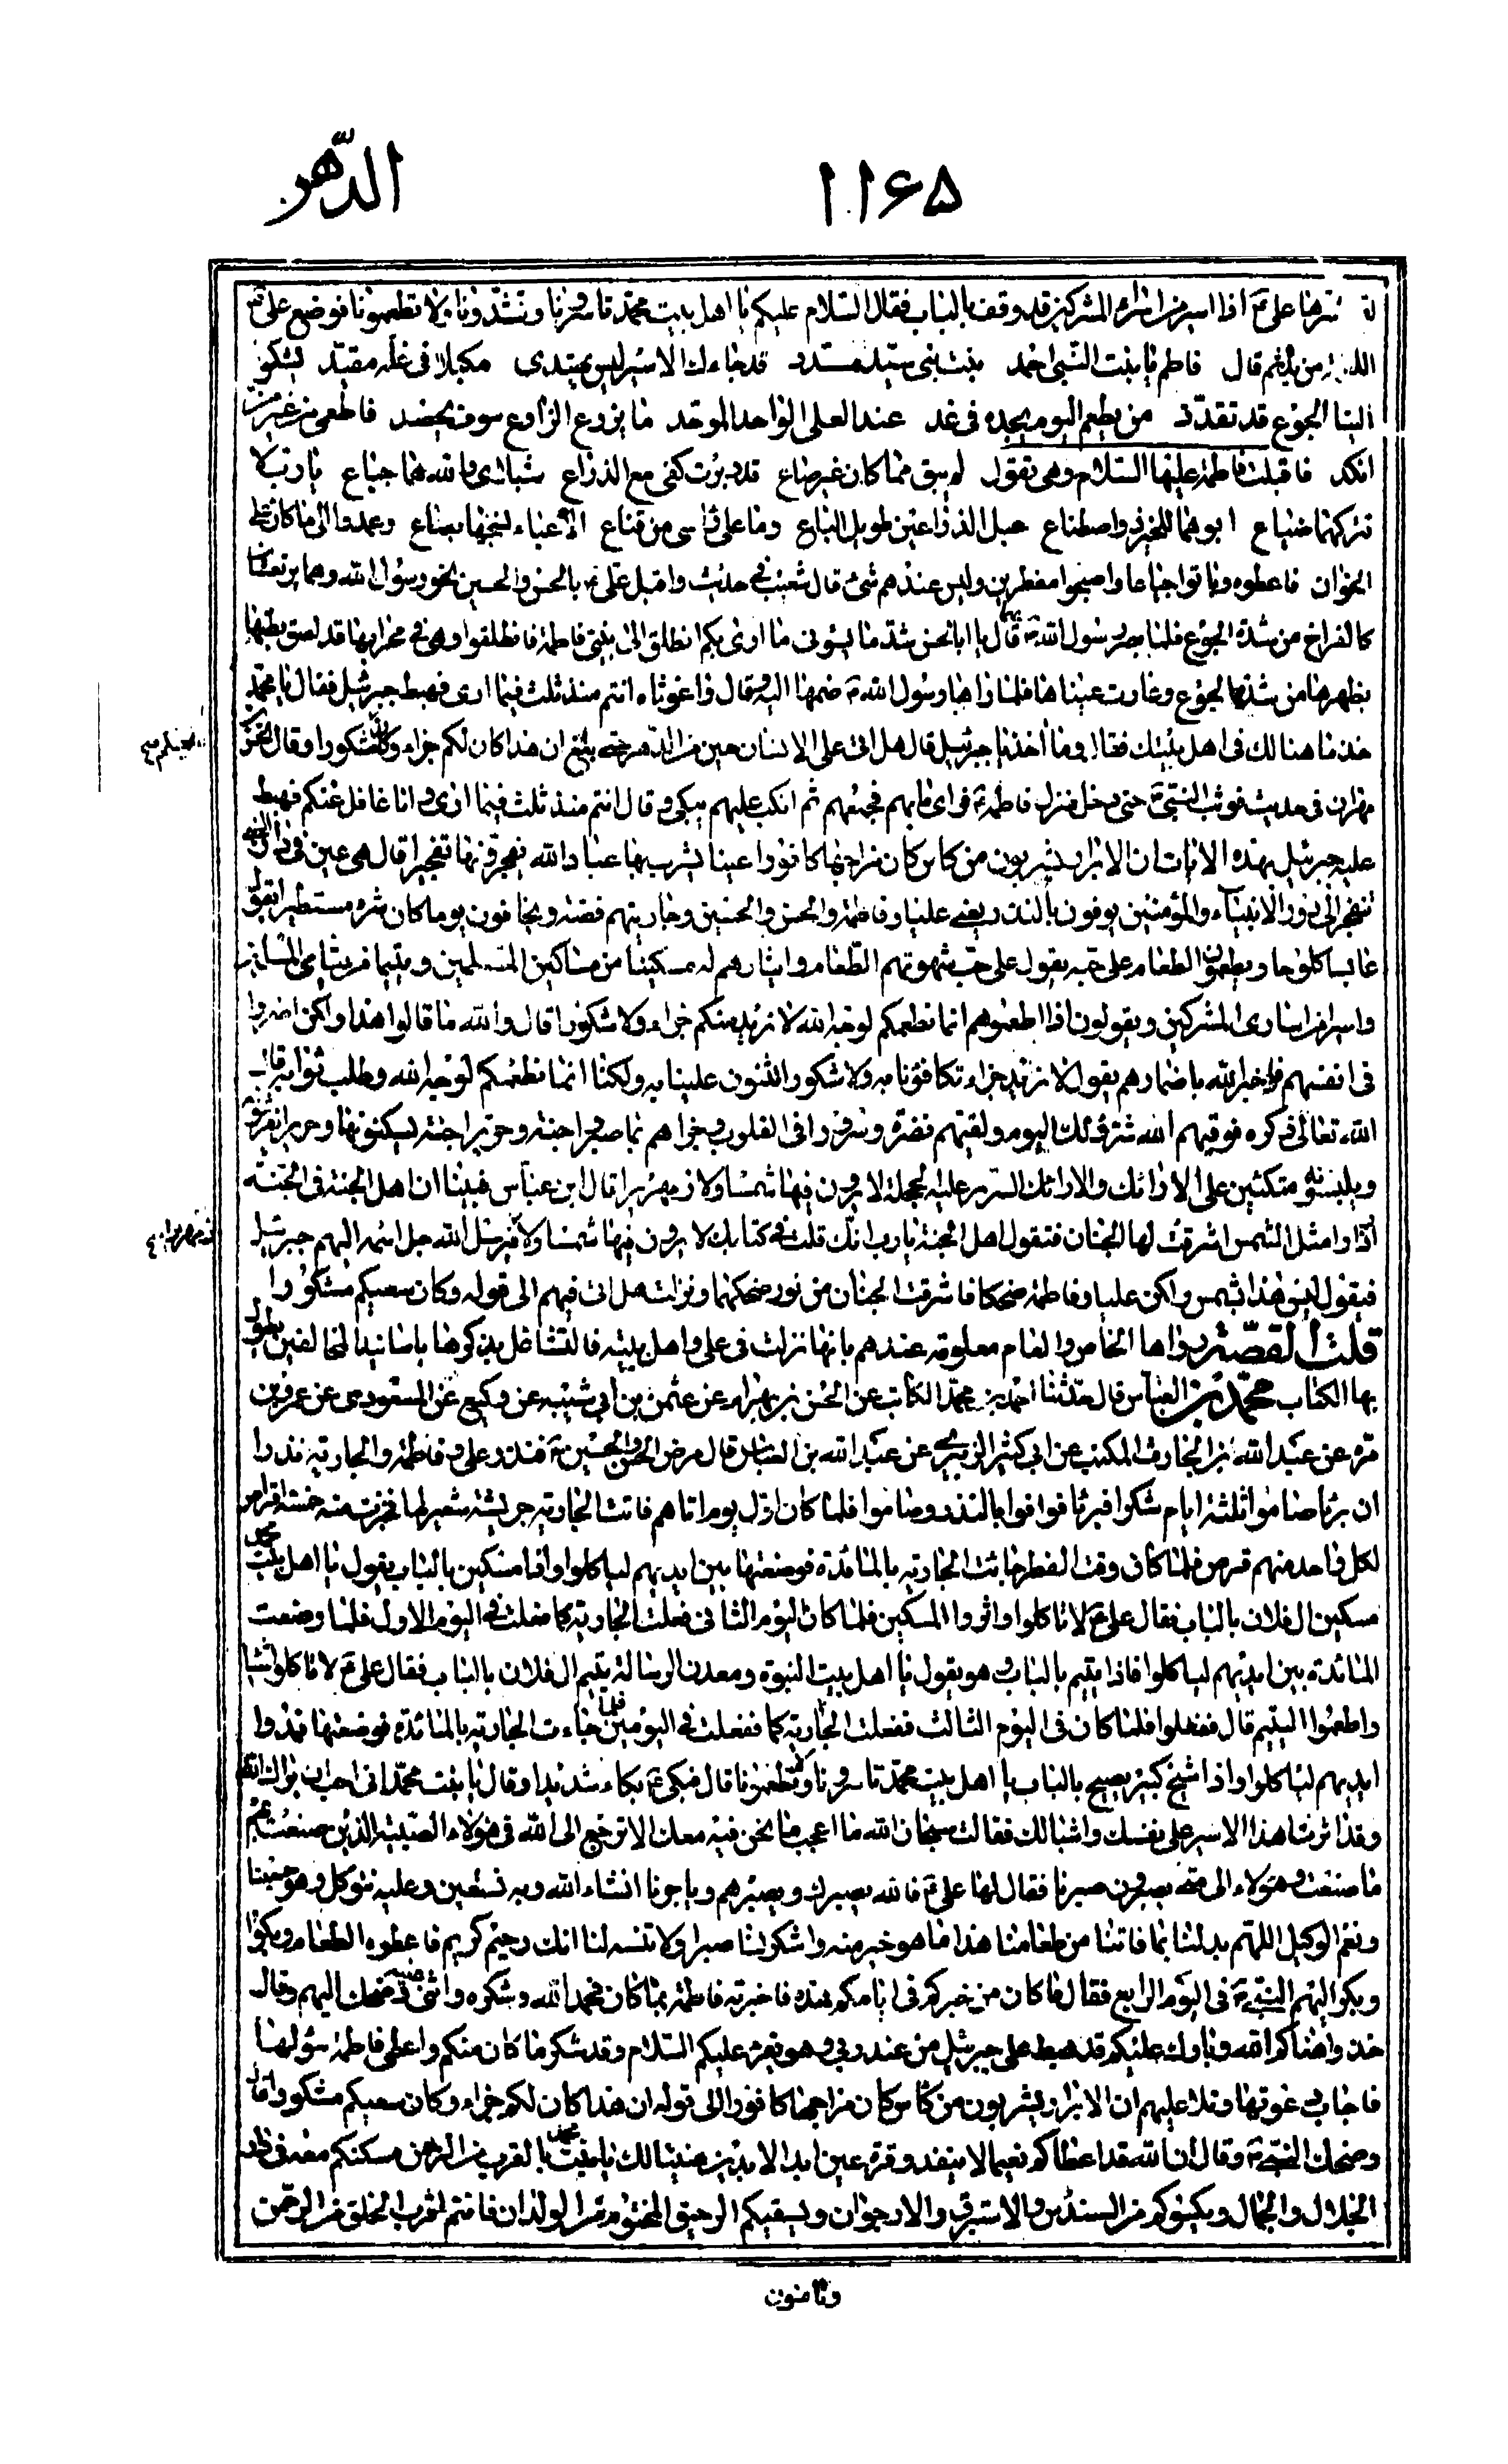 ١١٦٥ الدّهر
علىّ ع اذا اسير من اسراء المشركين قد وقف بالباب فقال السّلام عليكم يا اهل بيت محمّد تاسرونا وتشدّونا ولا تطعمونا فوضع علىّ
من يده ثم قال فاطم يا بنت النّبى احمد بنت نبى سيّد مسدد قد جاءك الاسير ليس يهتدى مكبلا فى غلّه مقيّد يشكو
الينا الجوع قد تقدّد من يطعم اليوم يجده فى غد عند العلى الواحد الموحّد ما يزرع الزّارع سوف يحصد فاطعمى من غير منّ
انكد فاقبلت فاطمة عليها السّلام وهى تقول لم يبق مما كان غير صاع قد دبرت كفى مع الذراع شبلاى والله هما جياع يا ربّ لا
تتركهما ضياع ابوهما للخير ذو اصطناع عبل الذراعين طويل الباع وما على راسى من قناع الا عباء نسجها بصاع وعمدوا الى ما كان على
الخوان فاعطوه وباتوا جياعا واصبحوا مفطرين وليس عندهم شئ قال شعيب فى حديثه واقبل علىّ ع بالحسن والحسين نحو رسول الله وهما يرتعشان
كالفراخ من شدّة الجوع فلما بصر بهم رسول الله ص قال يا ابا الحسن شدّ ما يسوئنى ما ارى بكم انطلق الى ابنتى فاطمة فانطلقوا وهى فى محرابها قد لصق بطنها
بظهرها من شدّة الجوع وغارت عيناها فلما راها رسول الله ص ضمها اليه وقال واغوثاه انتم منذ ثلث فيما ارى فهبط جبرئيل فقال يا محمّد
خذ ما هنا لك فى اهل بيتك فقال وما أخذ يا جبرئيل قال هل اتى على الانسان حين من الدّهر حتى بلغ ان هذا كان لكم جزاء وكان مشكورا وقال الحسن بن
مهران فى حديثه فوثب النّبىّ ص حتى دخل منزل فاطمة ع فراى ما بهم فجمعهم ثم انكب عليهم يبكى وقال انتم منذ ثلث فيما ارى وانا غافل عنكم فهبط
عليه جبرئيل بهذه الايات ان الابرار يشربون من كاس كان مزاجها كافورا عينا يشرب بها عباد الله يفجرونها تفجيرا قال هى عين فى دار النبى
تفجر الى دور الانبياء والمؤمنين يوفون بالنذر يعنى عليا وفاطمة والحسن والحسين وجاريتهم فضة ويخافون يوما كان شره مستطيرا يقول
عابسا كلوحا ويطعمون الطعام على حبّه يقول على حبّ شهوتهم الطّعام وايثارهم له مسكينا من مساكين المسلمين ويتيما من يتامى المسلمين
واسيرا من اسارى المشركين ويقولون اذا اطعموهم انما نطعمكم لوجه الله لا نريد منكم جزاء ولا شكورا قال والله ما قالوا هذا ولكن اضمروا
فى انفسهم فاخبر الله باضمارهم يقول لا نريد جزاء تكافؤنا به ولا شكورا تثنون علينا به ولكنا انما نطعمكم لوجه الله وطلب ثوابه قال
الله تعالى ذكره فوقيهم الله شر ذلك اليوم ولقيهم نضرة وسرورا فى القلوب وجزاهم بما صبروا جنة وحريرا جنة يسكنونها وحريرا يفترشونه
ويلبسونه متكئين على الارائك والارائك السرير عليه الحجلة لا يرون فيها شمسا ولا زمهريرا قال ابن عبّاس فبينا ان اهل الجنة فى الجنّة
اذا راوا مثل الشمس اشرقت لها الجنان فتقول اهل الجنة يا رب انّك قلت فى كتابك لا يرون فيها شمسا ولا فيرسل الله جل اسمه اليهم جبرئيل
فيقول ليس هذه بشمس ولكن عليا وفاطمة ضحكا فاشرقت الجنان من نور ضحكهما ونزلت هل اتى فيهم الى قوله وكان سعيكم مشكورا
قلت القصّة رواها الخاص والعام معلومة عندهم بانها نزلت فى على واهل بيته فالتشاغل بذكرها باسانيد المخالفين يطول
بها الكتاب محمّد بن العباس قال حدّثنا احمد بن محمّد الكاتب عن الحسن بن بهرام عن عثمن بن ابى شيبه عن وكيع عن المسعودى عن عمرو بن
مرّه عن عبد الله بن الحارث المكتب عن ابى كثير الزبيرى عن عبد الله بن العباس قال مرض الحسن والحسين ع فنذر على وفاطمة والجارية نذرا
ان برئا صاموا ثلثة ايام شكرا فبرئا فوافوا بالنذر وصاموا فلما كان اوّل يوم اتاهم فاتت الجارية جريشة شعير لها فخبزت منه خمسة اقراص
لكل واحد منهم قرص فلما كان وقت الفطر جائت الجارية بالمائدة فوضعتها بين ايديهم لياكلوا وافا مسكين بالباب يقول يا اهل بيت محمّد
مسكين ال فلان بالباب فقال على ع لا تاكلوا واثروا المسكين فلما كان اليوم الثانى فعلت الجارية كما فعلت فى اليوم الاول فلما وضعت
المائدة بين ايديهم لياكلوا فاذا يتيم بالباب وهو يقول يا اهل بيت النبوة ومعدن الرسالة يتيم ال فلان بالباب فقال على ع لا تاكلوا شيئا
واطعموا اليتيم قال ففعلوا فلما كان فى اليوم الثالث ففعلت الجارية كما فعلت فى اليومين جاءت الجارية بالمائدة فوضعتها فمدوا
ايديهم لياكلوا واذا شيخ كبير يصيح بالباب يا اهل بيت محمّد تاسرونا ولا تطعمونا قال فبكى ع بكاء شديدا وقال يا بنت محمّد انى احب ان يراك الله
وقد اثرت هذا الاسير على نفسك واشبالك فقالت سبحان الله ما اعجب ما نحن فيه معك الا ترجع الى الله فى هؤلاء الصّبية الذين صنعت بهم
ما صنعت وهؤلاء الى متى يصبرون صبرنا فقال لها على ع فالله يصبرك ويصبّرهم وياجرنا انشاء الله وبه نستعين وعليه نتوكل وهو حسبنا
ونعم الوكيل اللهم بدلنا بما فاتنا من طعامنا هذا ما هو خير منه واشكر لنا صبرنا ولا تنسه لنا انك رحيم كريم فاعطوه الطعام وبكروا
وبكر اليهم النبىّ ص فى اليوم الرابع فقال ما كان من خبركم فى ايامكم هذه فاخبرته فاطمة بما كان فحمد الله وشكره واثنى وضحك اليهم وقال
خذوا هنّاكم الله وبارك عليكم قد هبط على جبرئيل من عند ربى وهو يقرء عليكم السّلام وقد شكر ما كان منكم واعطى فاطمة سؤلها
فاجاب دعوتها وتلا عليهم ان الابرار يشربون من كاس كان مزاجها كافورا الى قوله ان هذا كان لكم جزاء وكان سعيكم مشكورا قال
وضحك النّبىّ ص وقال ان الله قد اعطاكم نعيما لا ينفد وقرة عين ابد الابدين هنيئا لك يا بيت محمد بالقرب من الرحمن مسكنكم معه فى دار
الجلال والجمال ويكسوكم من السندس والاستبرق والارجوان ويسقيكم الرحيق المختوم من الولدان فانتم اقرب الخلق من الرحمن
وتامنون